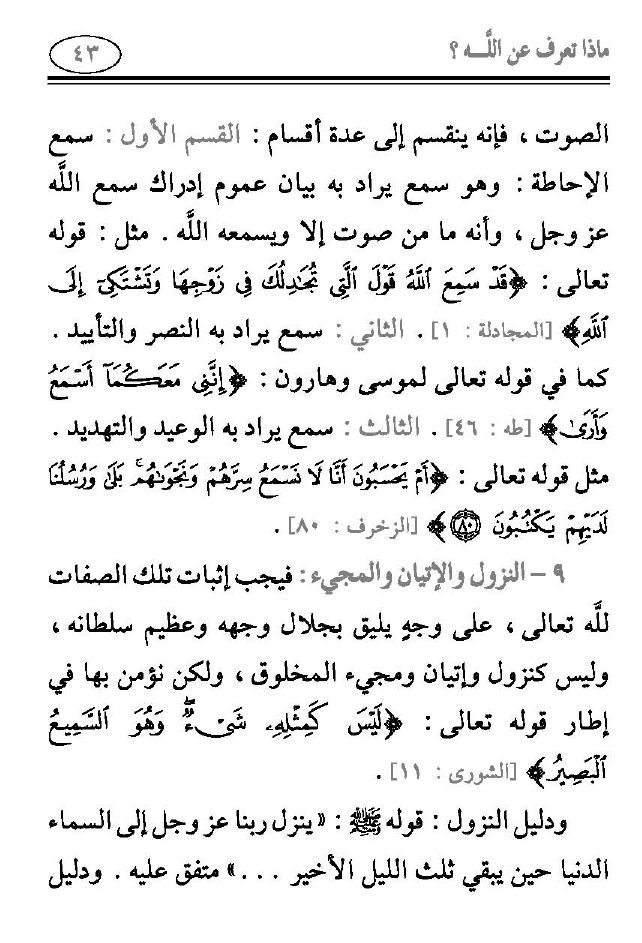 ماذا تعرف عن اللَّـه ؟ ٤٣
الصوت ، فإنه ينقسم إلى عدة أقسام : القسم الأول : سمع
الإحاطة : وهو سمع يراد به بيان عموم إدراك سمع اللَّه
عز وجل ، وأنه ما من صوت إلا ويسمعه اللَّه . مثل : قوله
تعالى : ﴿قَدْ سَمِعَ ٱللَّهُ قَوْلَ ٱلَّتِى تُجَٰدِلُكَ فِى زَوْجِهَا وَتَشْتَكِىٓ إِلَى
ٱللَّهِ﴾ [المجادلة : ١] . الثاني : سمع يراد به النصر والتأييد .
كما في قوله تعالى لموسى وهارون : ﴿إِنَّنِى مَعَكُمَآ أَسْمَعُ
وَأَرَىٰ﴾ [طه : ٤٦] . الثالث : سمع يراد به الوعيد والتهديد .
مثل قوله تعالى : ﴿أَمْ يَحْسَبُونَ أَنَّا لَا نَسْمَعُ سِرَّهُمْ وَنَجْوَىٰهُم ۚ بَلَىٰ وَرُسُلُنَا
لَدَيْهِمْ يَكْتُبُونَ ٨٠﴾ [الزخرف : ٨٠] .
٩ – النزول والإتيان والمجيء : فيجب إثبات تلك الصفات
للَّه تعالى ، على وجهٍ يليق بجلال وجهه وعظيم سلطانه ،
وليس كنزول وإتيان ومجيء المخلوق ، ولكن نؤمن بها في
إطار قوله تعالى : ﴿لَيْسَ كَمِثْلِهِۦ شَىْءٌ ۖ وَهُوَ ٱلسَّمِيعُ
ٱلْبَصِيرُ﴾ [الشورى : ١١] .
ودليل النزول : قوله ﷺ : «ينزل ربنا عز وجل إلى السماء
الدنيا حين يبقي ثلث الليل الأخير ...» متفق عليه . ودليل